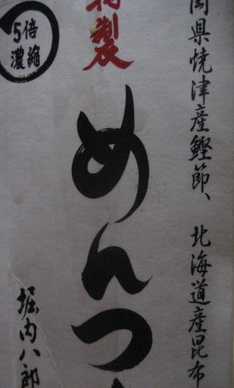 岡県焼津産鰹節、北海道産昆布
特製
めんつ
5倍
濃縮
堀内八郎